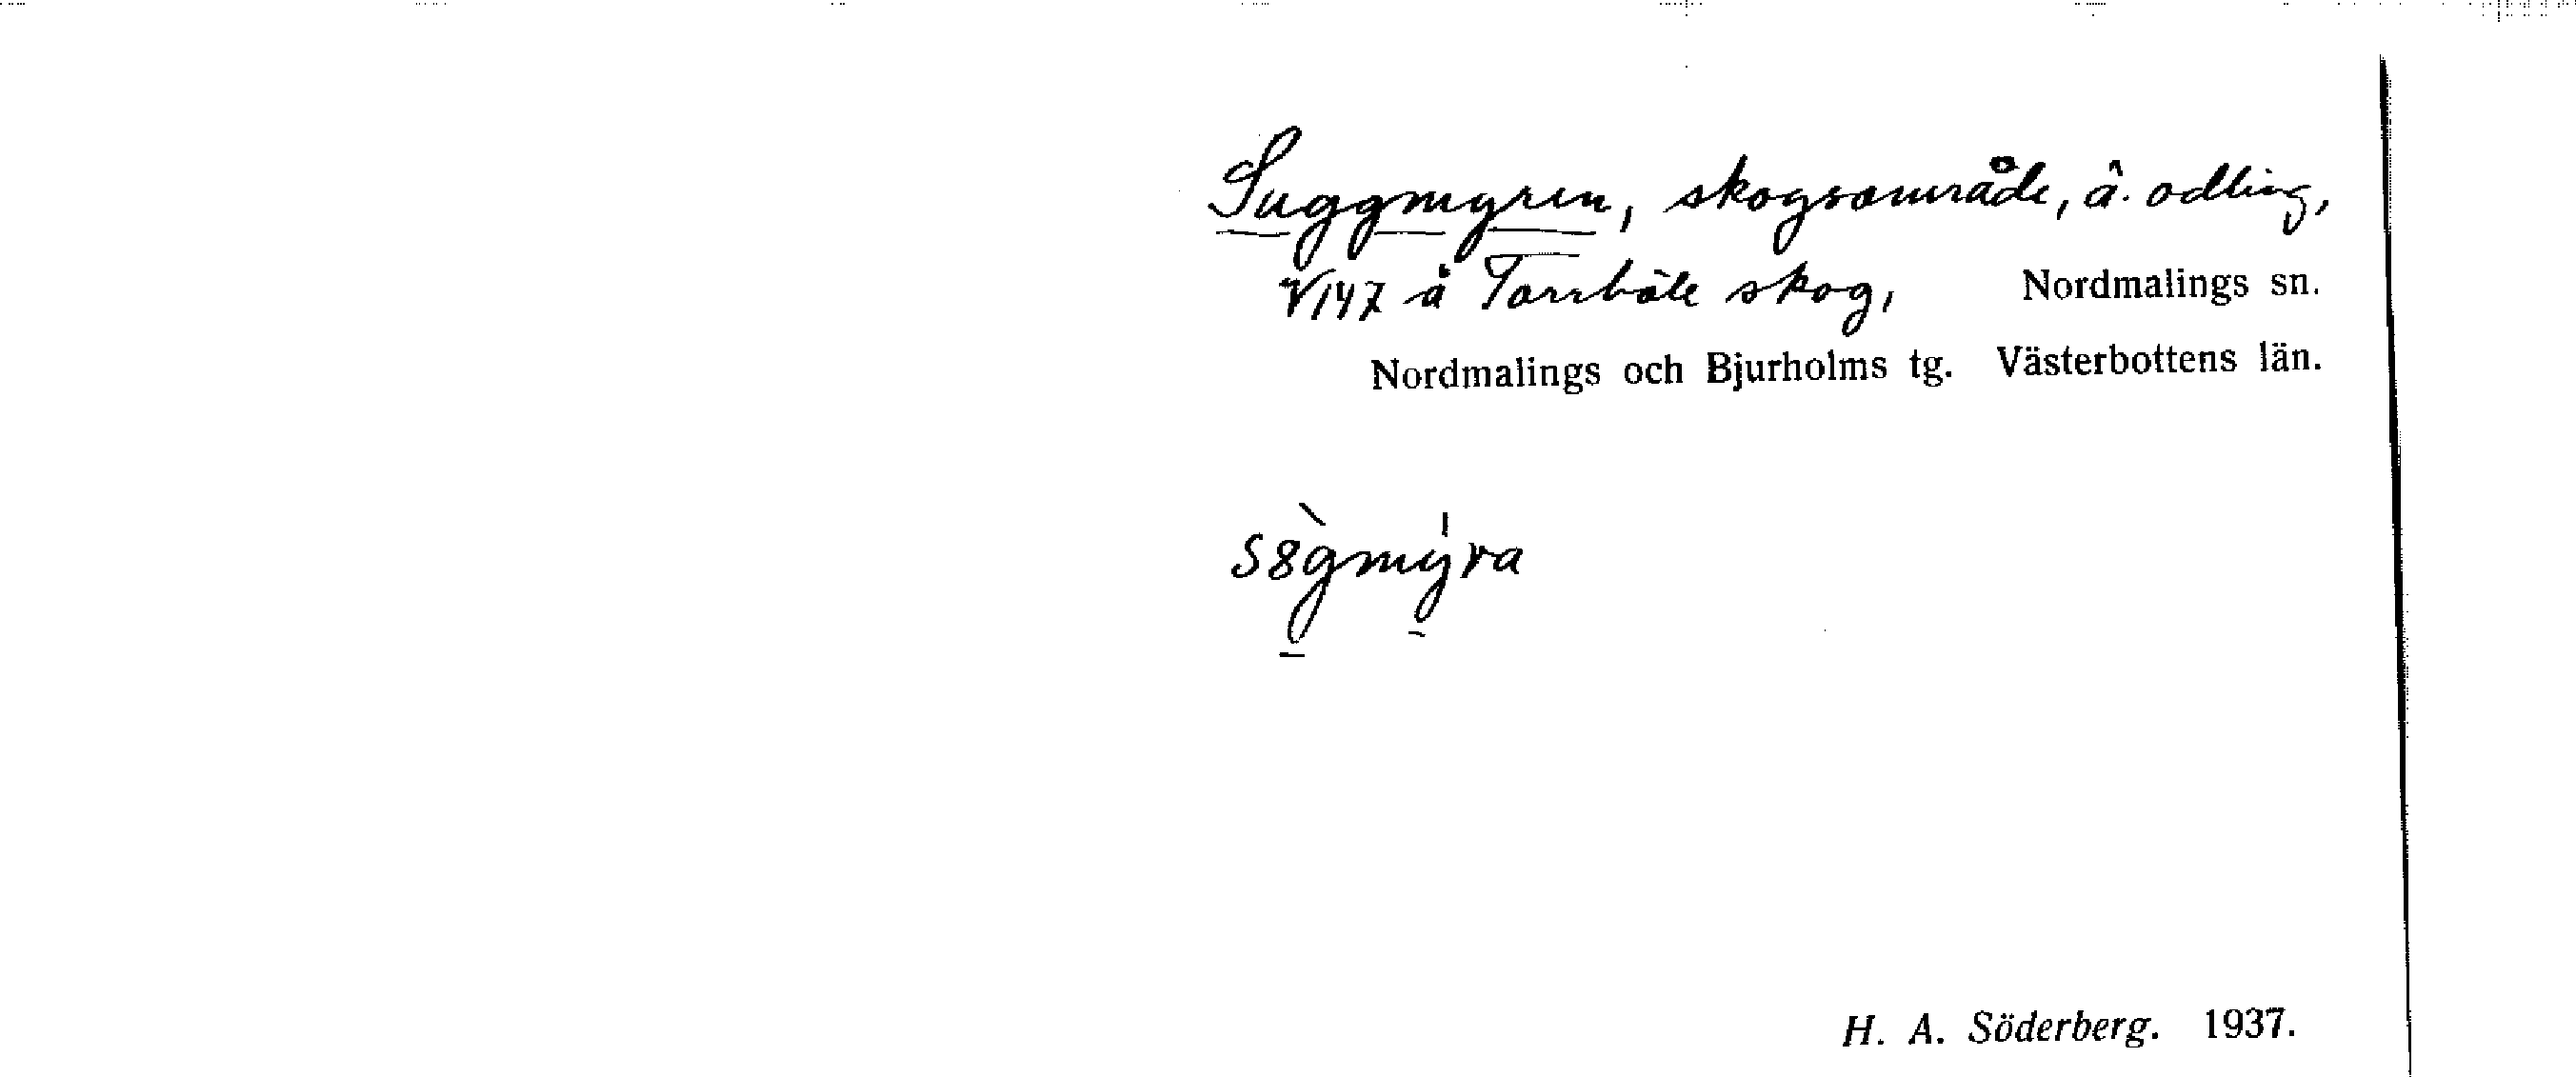 Suggmyren, skogsområde, ä. odling,
V147 å Torrböle skog, Nordmalings sn.
Nordmalings och Bjurholms tg. Västerbottens län.
s8̀gmy̍ra
H. A. Söderberg. 1937.